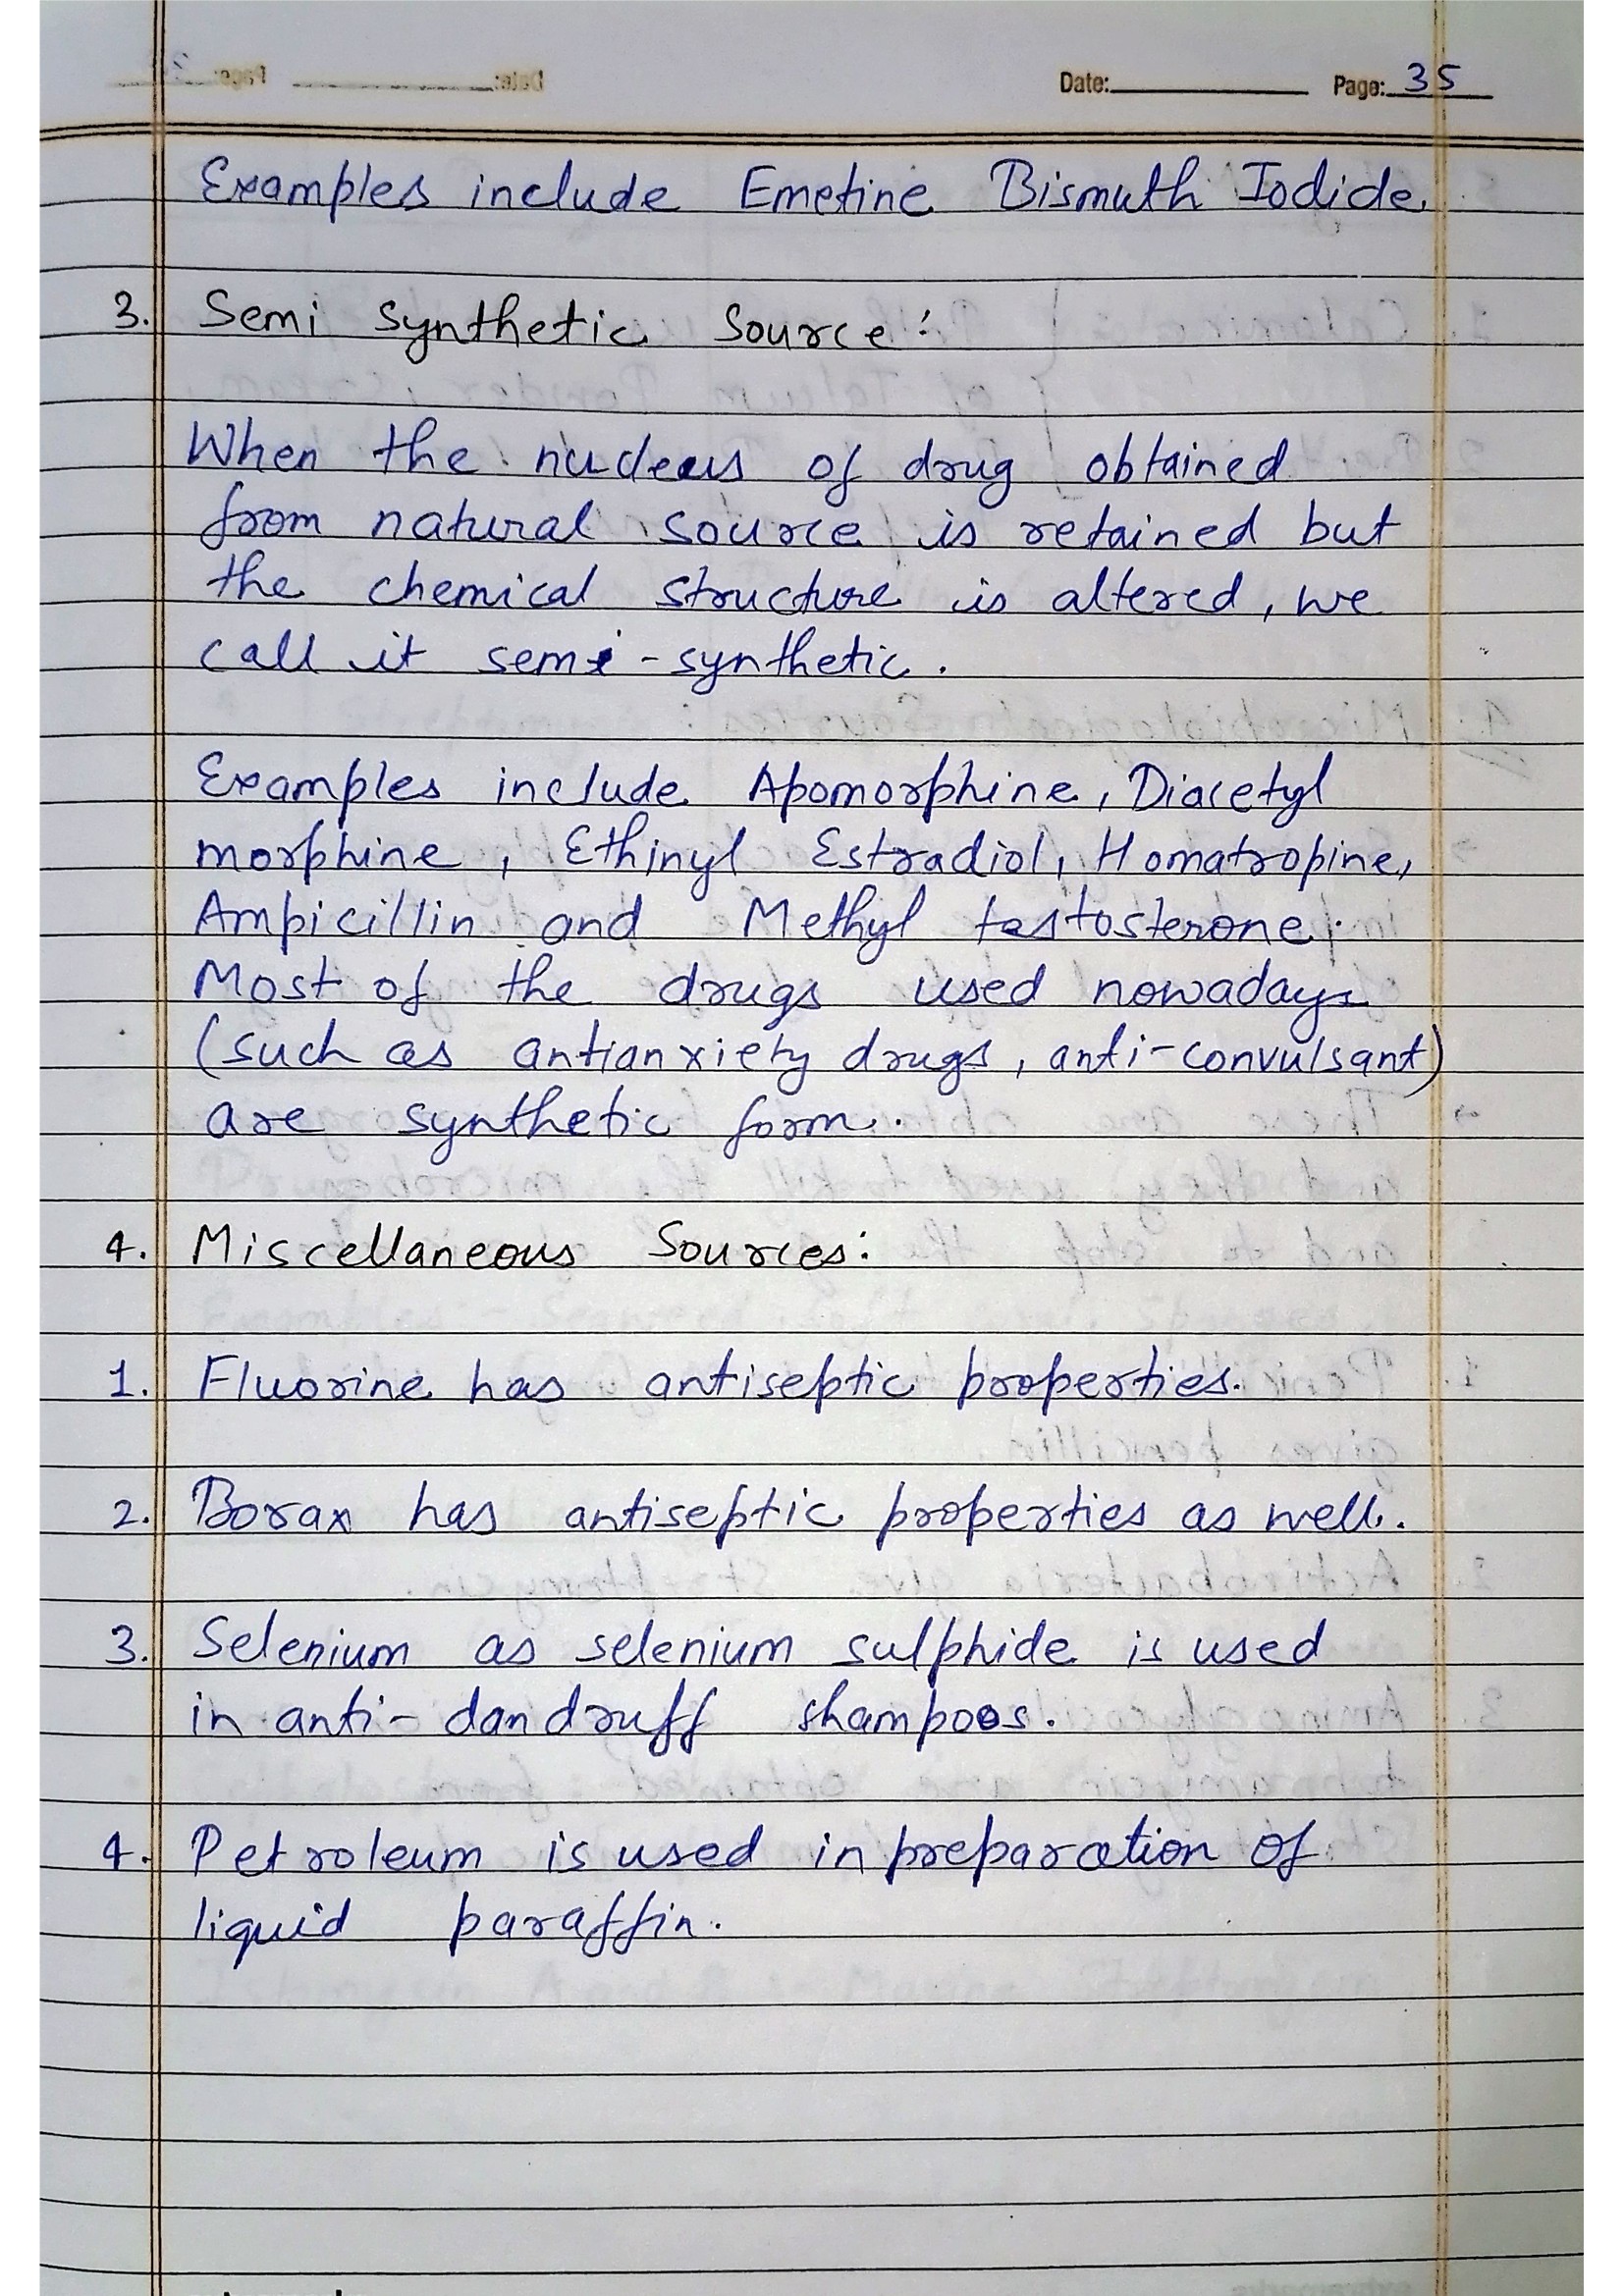 Date: Page: 35
Examples include Emetine Bismuth Iodide.
3. Semi Synthetic Source:
When the nucleus of drug obtained
from natural source is retained but
the chemical structure is altered, we
call it semi-synthetic.
Examples include Apomorphine, Diacetyl
morphine, Ethinyl Estradiol, Homatropine,
Ampicillin and Methyl testosterone.
Most of the drugs used nowadays
(such as antianxiety drugs, anti-convulsant)
are synthetic form.
4. Miscellaneous Sources:
1. Fluorine has antiseptic properties.
2. Borax has antiseptic properties as well.
3. Selenium as selenium sulphide is used
in anti-dandruff shampoos.
4. Petroleum is used in preparation of
liquid paraffin.